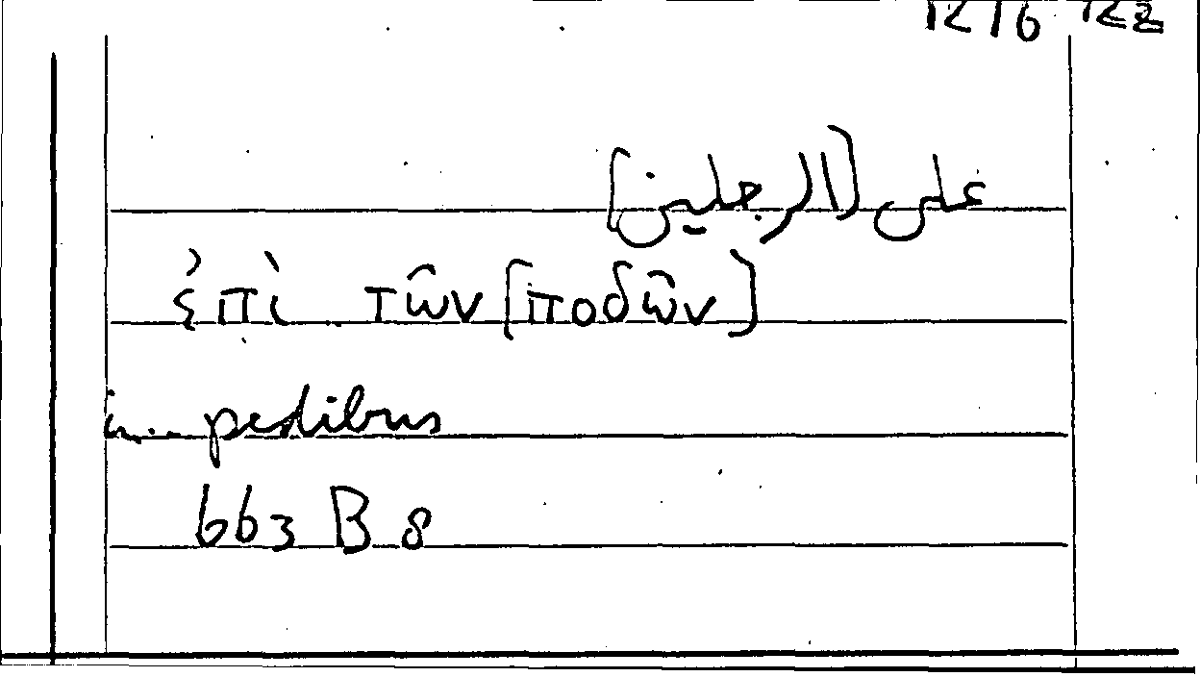 على [الرجلين]
ἐπὶ τῶν [ποδῶν]
in.. pedibus
663 B 8